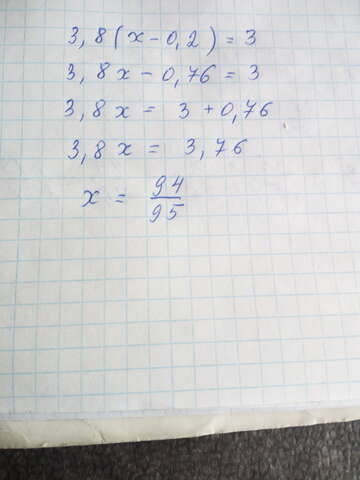 3,8(x-0,2)=3
3,8x-0,76=3
3,8x=3+0,76
3,8x=3,76
x=94/95